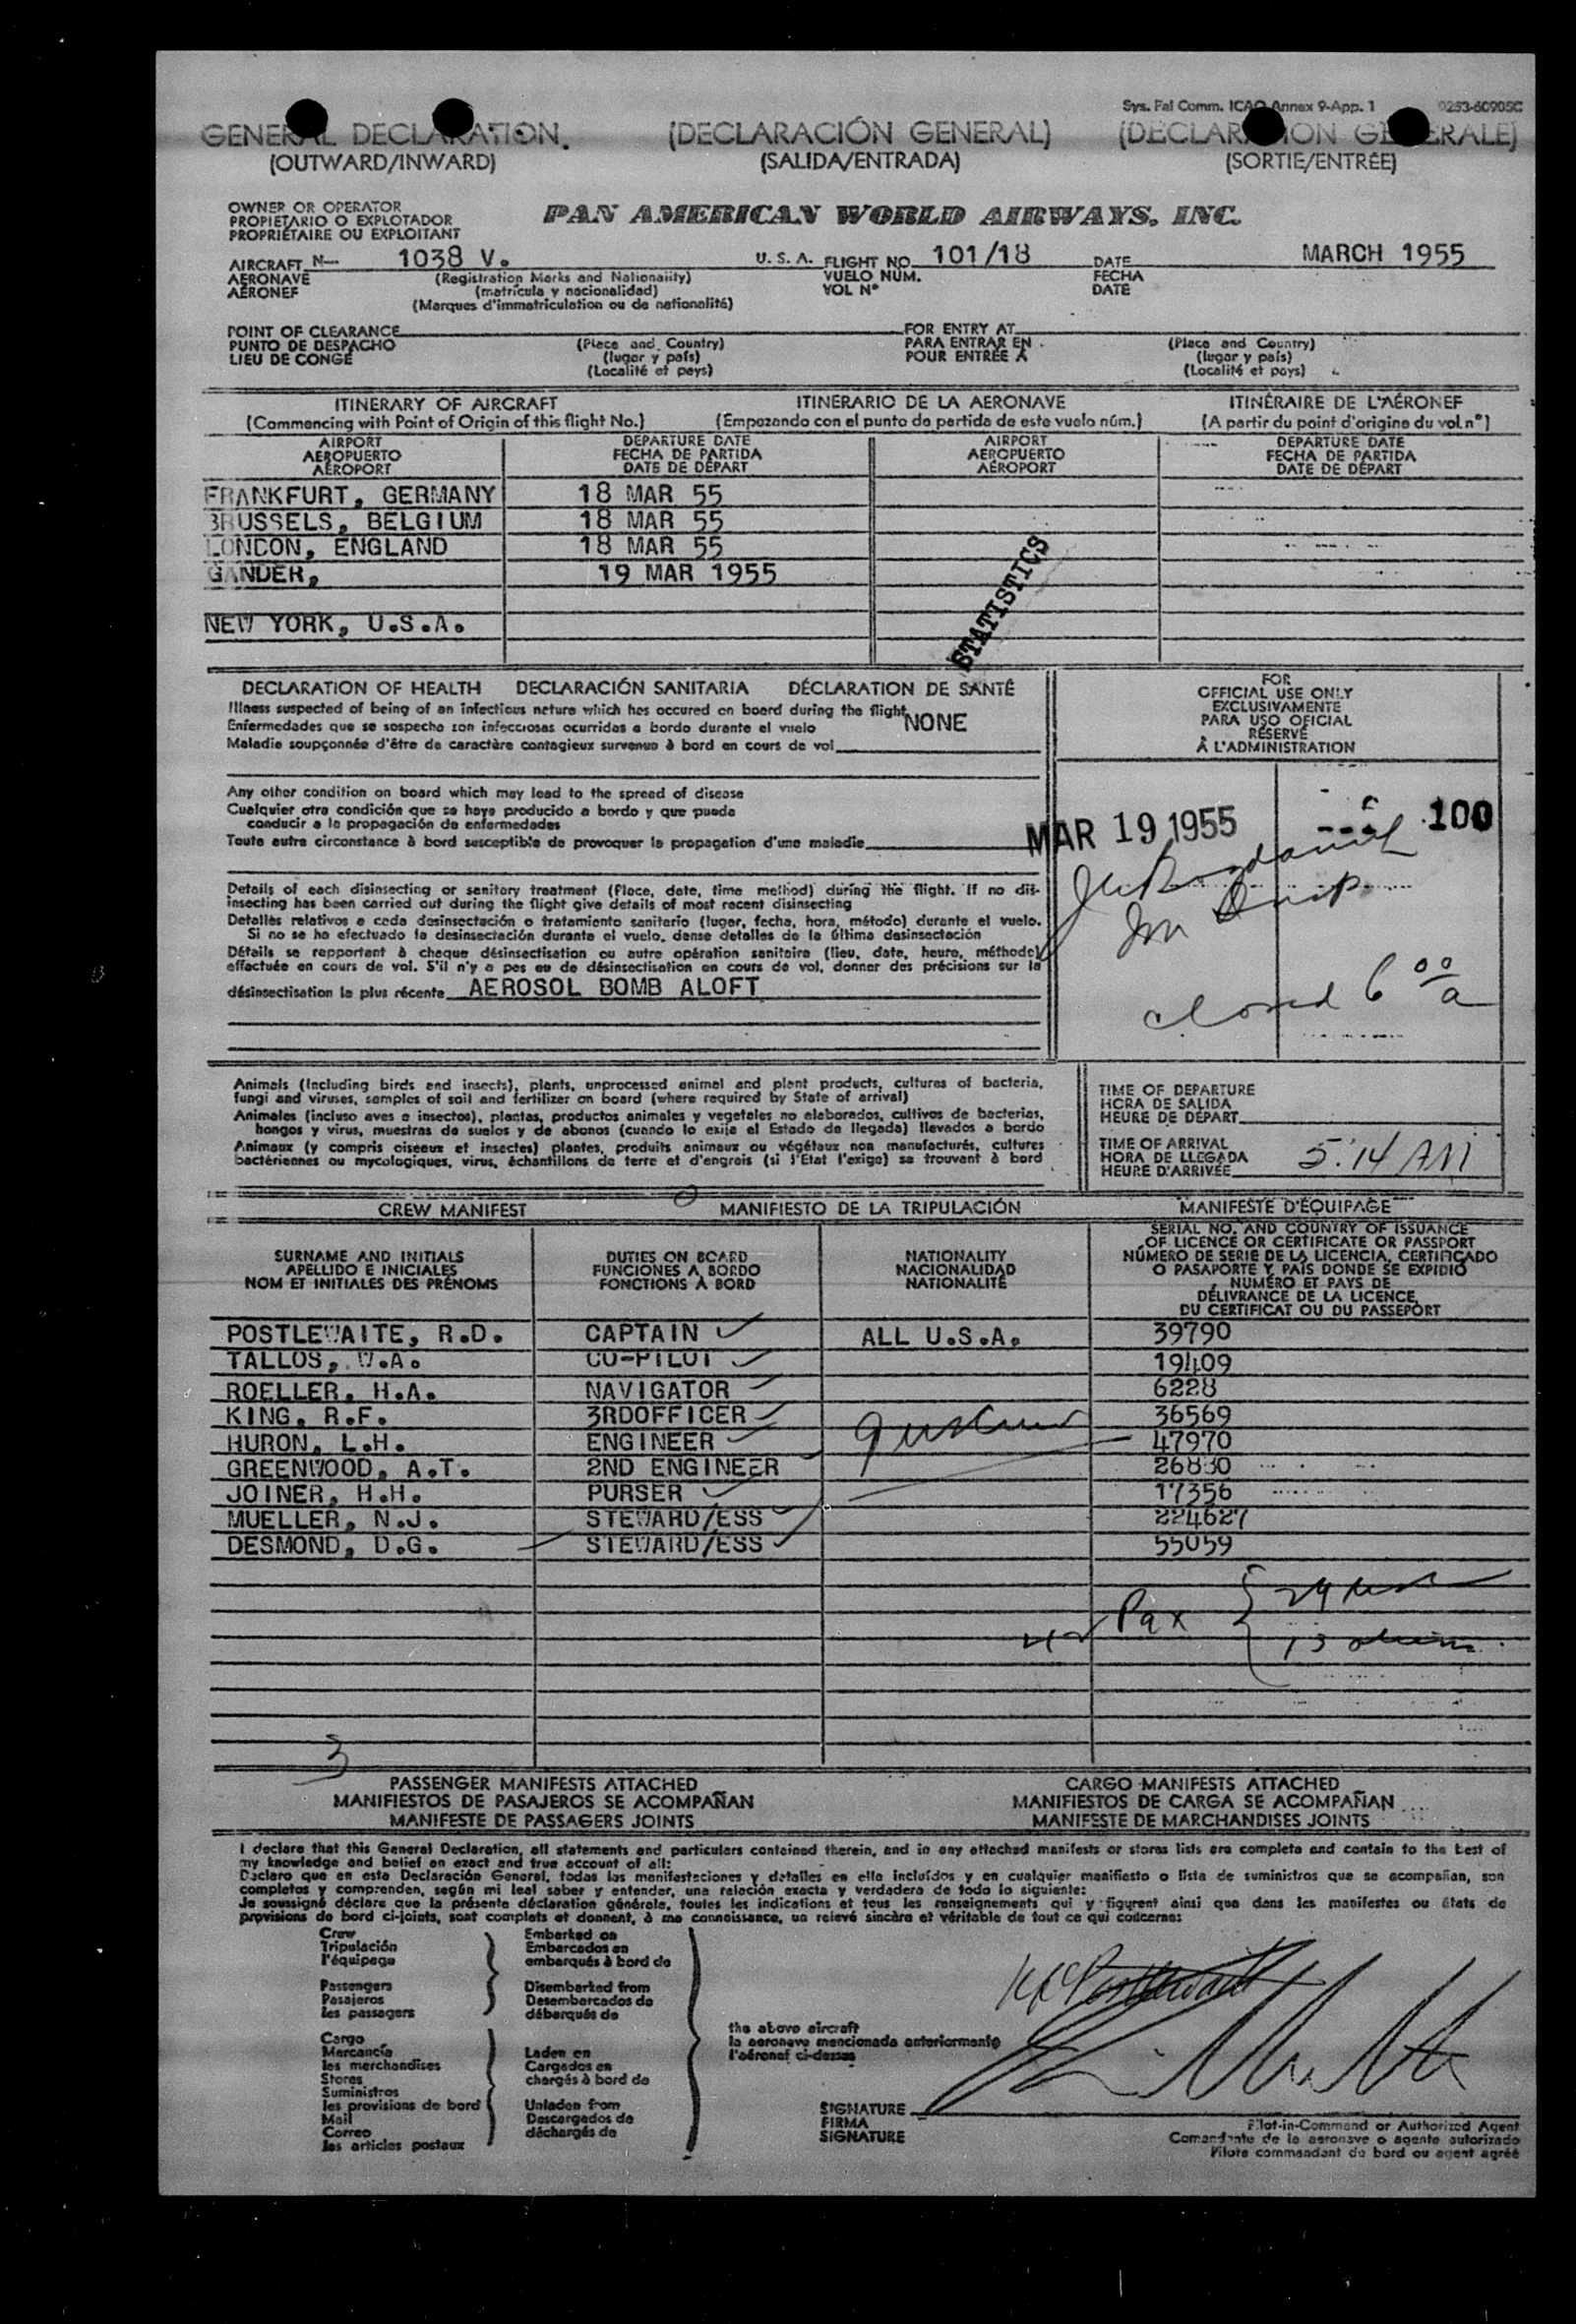 Sys. Fal Comm. ICAO Annex 9-App. 1 0253-60905C
GENERAL DECLARATION. (DECLARACIÓN GENERAL) (DECLARATION GENERALE)
(OUTWARD/INWARD) (SALIDA/ENTRADA) (SORTIE/ENTRÉE)
OWNER OR OPERATOR
PROPIETARIO O EXPLOTADOR
PROPRIÉTAIRE OU EXPLOITANT
PAN AMERICAN WORLD AIRWAYS, INC.
AIRCRAFT N— 1038 V. U. S. A. FLIGHT NO. 101/18 DATE MARCH 1955
AERONAVE (Registration Marks and Nationality) VUELO NÚM. FECHA
AÉRONEF (matrícula y nacionalidad) VOL Nº DATE
(Marques d'immatriculation ou de nationalité)
POINT OF CLEARANCE FOR ENTRY AT
PUNTO DE DESPACHO (Place and Country) PARA ENTRAR EN (Place and Country)
LIEU DE CONGÉ (lugar y país) POUR ENTRÉE À (lugar y país)
(Localité et pays) (Localité et pays)
ITINERARY OF AIRCRAFT ITINERARIO DE LA AERONAVE ITINÉRAIRE DE L'AÉRONEF
(Commencing with Point of Origin of this flight No.) (Empezando con el punto de partida de este vuelo núm.) (A partir du point d'origine du vol nº)
AIRPORT DEPARTURE DATE AIRPORT DEPARTURE DATE
AEROPUERTO FECHA DE PARTIDA AEROPUERTO FECHA DE PARTIDA
AÉROPORT DATE DE DÉPART AÉROPORT DATE DE DÉPART
FRANKFURT, GERMANY 18 MAR 55
BRUSSELS, BELGIUM 18 MAR 55
LONDON, ENGLAND 18 MAR 55
GANDER, 19 MAR 1955
NEW YORK, U.S.A.
STATISTICS
DECLARATION OF HEALTH DECLARACIÓN SANITARIA DÉCLARATION DE SANTÉ
Illness suspected of being of an infectious nature which has occured on board during the flight
Enfermedades que se sospecha son infecciosas ocurridas a bordo durante el vuelo NONE
Maladie soupçonnée d'être de caractère contagieux survenue à bord en cours de vol
Any other condition on board which may lead to the spread of disease
Cualquier otra condición que se haya producido a bordo y que pueda
conducir a la propagación de enfermedades
Toute autre circonstance à bord susceptible de provoquer la propagation d'une maladie
Details of each disinsecting or sanitary treatment (Place, date, time method) during the flight. If no dis-
insecting has been carried out during the flight give details of most recent disinsecting
Detalles relativos a cada desinsectación o tratamiento sanitario (lugar, fecha, hora, método) durante el vuelo.
Si no se ha efectuado la desinsectación durante el vuelo, dense detalles de la última desinsectación
Détails se rapportant à chaque désinsectisation ou autre opération sanitaire (lieu, date, heure, méthode)
effectuée en cours de vol. S'il n'y a pas eu de désinsectisation en cours de vol, donner des précisions sur la
désinsectisation la plus récente AEROSOL BOMB ALOFT
FOR
OFFICIAL USE ONLY
EXCLUSIVAMENTE
PARA USO OFICIAL
RÉSERVÉ
À L'ADMINISTRATION
MAR 19 1955 100
closed 6 00 a
Animals (Including birds and insects), plants, unprocessed animal and plant products, cultures of bacteria,
fungi and viruses, samples of soil and fertilizer on board (where required by State of arrival)
Animales (incluso aves e insectos), plantas, productos animales y vegetales no elaborados, cultivos de bacterias,
hongos y virus, muestras de suelos y de abonos (cuando lo exija el Estado de llegada) llevados a bordo
Animaux (y compris oiseaux et insectes) plantes, produits animaux ou végétaux non manufacturés, cultures
bactériennes ou mycologiques, virus, échantillons de terre et d'engrais (si l'Etat l'exige) se trouvant à bord
TIME OF DEPARTURE
HORA DE SALIDA
HEURE DE DÉPART
TIME OF ARRIVAL
HORA DE LLEGADA 5:14 AM
HEURE D'ARRIVÉE
CREW MANIFEST MANIFIESTO DE LA TRIPULACIÓN MANIFESTE D'ÉQUIPAGE
SURNAME AND INITIALS
APELLIDO E INICIALES
NOM ET INITIALES DES PRÉNOMS
DUTIES ON BOARD
FUNCIONES A BORDO
FONCTIONS À BORD
NATIONALITY
NACIONALIDAD
NATIONALITÉ
SERIAL NO. AND COUNTRY OF ISSUANCE
OF LICENCE OR CERTIFICATE OR PASSPORT
NÚMERO DE SERIE DE LA LICENCIA, CERTIFICADO
O PASAPORTE Y PAÍS DONDE SE EXPIDIÓ
NUMÉRO ET PAYS DE
DÉLIVRANCE DE LA LICENCE,
DU CERTIFICAT OU DU PASSEPORT
POSTLEWAITE, R.D. CAPTAIN ALL U.S.A. 39790
TALLOS, W.A. CO-PILOT 19409
ROELLER, H.A. NAVIGATOR 6228
KING, R.F. 3RDOFFICER 36569
HURON, L.H. ENGINEER 47970
GREENWOOD, A.T. 2ND ENGINEER 26830
JOINER, H.H. PURSER 17356
MUELLER, N.J. STEWARD/ESS 224627
DESMOND, D.G. STEWARD/ESS 55059
42 Pax { 29
13
3
PASSENGER MANIFESTS ATTACHED CARGO MANIFESTS ATTACHED
MANIFIESTOS DE PASAJEROS SE ACOMPAÑAN MANIFIESTOS DE CARGA SE ACOMPAÑAN
MANIFESTE DE PASSAGERS JOINTS MANIFESTE DE MARCHANDISES JOINTS
I declare that this General Declaration, all statements and particulars contained therein, and in any attached manifests or stores lists are complete and contain to the best of
my knowledge and belief an exact and true account of all:
Declaro que en esta Declaración General, todas las manifestaciones y detalles en ella incluídos y en cualquier manifiesto o lista de suministros que se acompañan, son
completos y comprenden, según mi leal saber y entender, una relación exacta y verdadera de todo lo siguiente:
Je soussigné déclare que la présente déclaration générale, toutes les indications et tous les renseignements qui y figurent ainsi que dans les manifestes ou états de
provisions de bord ci-joints, sont complets et donnent, à ma connaissance, un relevé sincère et véritable de tout ce qui concerne:
Crew Embarked on
Tripulación Embarcados en
l'équipage embarqués à bord de
Passengers Disembarked from
Pasajeros Desembarcados de
les passagers débarqués de
the above aircraft
la aeronave mencionada anteriormente
l'aéronef ci-dessus
Cargo
Mercancía Laden on
les merchandises Cargados en
Stores chargés à bord de
Suministros
les provisions de bord Unladen from
Mail Descargados de
Correo déchargés de
les articles postaux
SIGNATURE
FIRMA
SIGNATURE
Pilot-in-Command or Authorized Agent
Comandante de la aeronave o agente autorizado
Pilote commandant de bord ou agent agréé